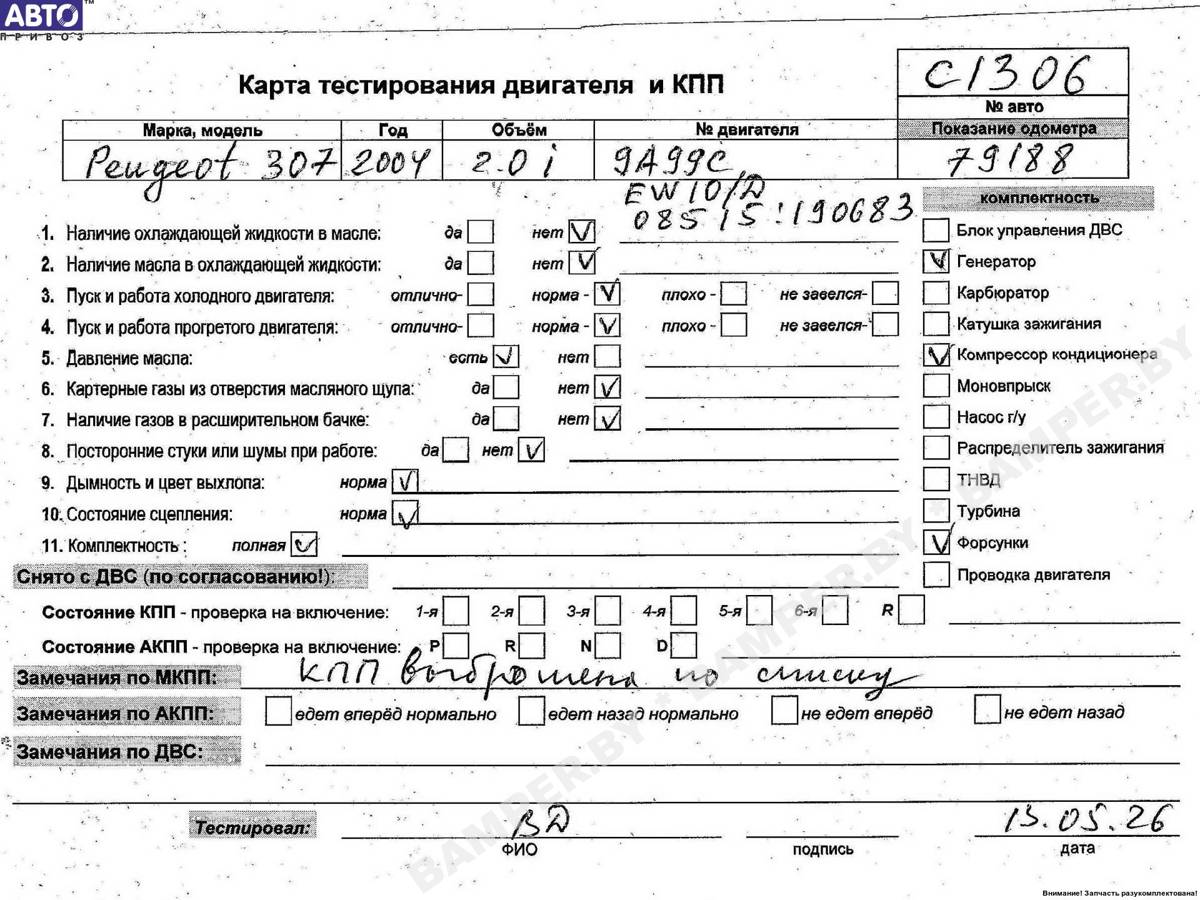 АВТО™
ПРИВОЗ
Карта тестирования двигателя и КПП
С1306
№ авто
Марка, модель Год Объём № двигателя Показание одометра
Peugeot 307 2004 2.0 i 9A99C 79188
EW10/D
08515:190683
комплектность
1. Наличие охлаждающей жидкости в масле: да нет V
Блок управления ДВС
2. Наличие масла в охлаждающей жидкости: да нет V
V Генератор
3. Пуск и работа холодного двигателя: отлично- норма - V плохо - не завелся-
Карбюратор
4. Пуск и работа прогретого двигателя: отлично- норма - V плохо - не завелся-
Катушка зажигания
5. Давление масла: есть V нет
V Компрессор кондиционера
6. Картерные газы из отверстия масляного щупа: да нет V
Моновпрыск
7. Наличие газов в расширительном бачке: да нет V
Насос г/у
8. Посторонние стуки или шумы при работе: да нет V
Распределитель зажигания
9. Дымность и цвет выхлопа: норма V
ТНВД
10. Состояние сцепления: норма V
Турбина
11. Комплектность : полная V
V Форсунки
Снято с ДВС (по согласованию!):
Проводка двигателя
Состояние КПП - проверка на включение: 1-я 2-я 3-я 4-я 5-я 6-я R
Состояние АКПП - проверка на включение: P R N D
Замечания по МКПП: КПП выброшена по списку
Замечания по АКПП: едет вперёд нормально едет назад нормально не едет вперёд не едет назад
Замечания по ДВС:
Тестировал: ВД 13.05.26
ФИО подпись дата
BAMPER.BY * BAMPER.BY * BAMPER.BY * BAMPER.BY
Внимание! Запчасть разукомплектована!